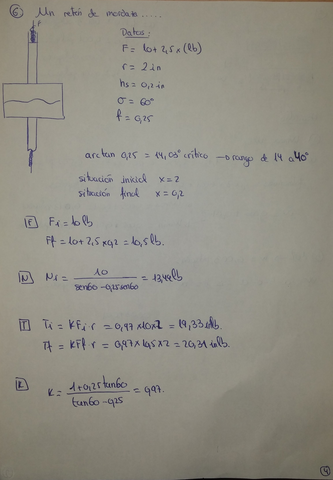 6 Un retén de mordaza .....
F
Datos:
F = 10 + 2,5 x (lb)
r = 2 in
hs = 0,2 in
σ = 60°
f = 0,25
arctan 0,25 = 14,03° crítico → rango de 14 a 40°
situación inicial x = 2
situación final x = 0,2
F Fi = 10 lb
Ff = 10 + 2,5 x 0,2 = 10,5 lb.
N Ni = 10 / sen60 - 0,25 cos60 = 13,49 lb
T Ti = K Fi r = 0,97 x 10 x 2 = 19,33 inlb.
Tf = K Ff r = 0,97 x 10,5 x 2 = 20,31 inlb.
K K = 1 + 0,25 tan60 / tan60 - 0,25 = 0,97.